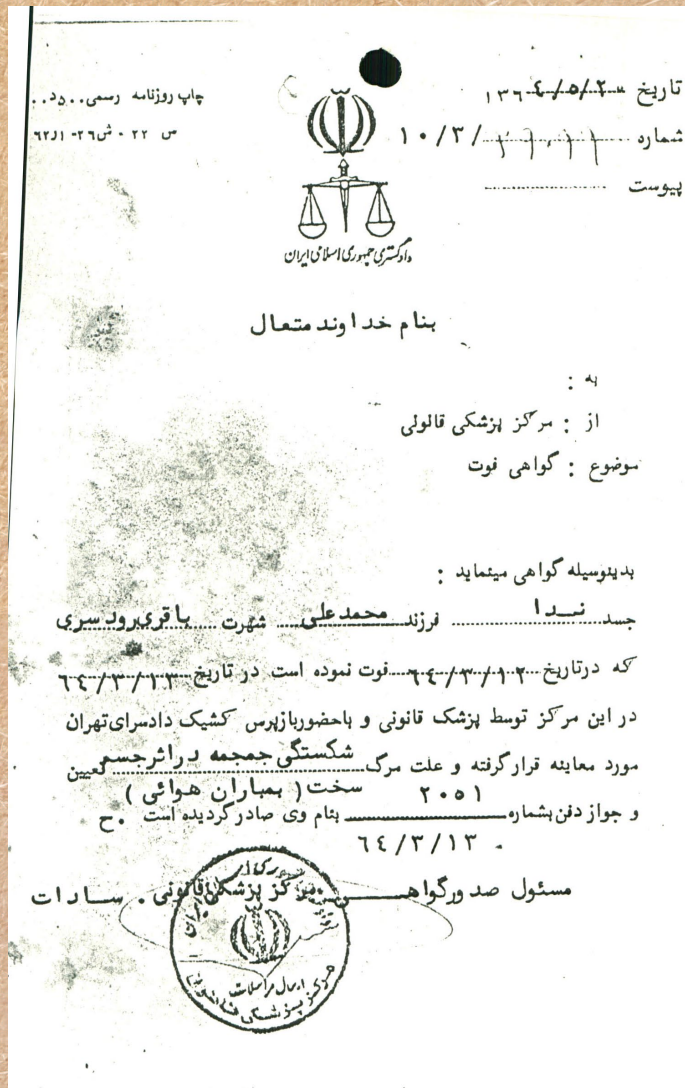 تاریخ ۱۳۶۴/۵/۲۰
شماره ۱۰/۳/
پیوست
چاپ روزنامه رسمی
ص ۲۲ - ش ۲۶-
دادگستری جمهوری اسلامی ایران
بنام خداوند متعال
به :
از : مرکز پزشکی قانونی
موضوع : گواهی فوت
بدینوسیله گواهی مینماید :
جسد ندا فرزند محمدعلی شهرت باقری رودسری
که درتاریخ ۶۴/۳/۱۲ فوت نموده است در تاریخ ۶۴/۳/۱۳
در این مرکز توسط پزشک قانونی و باحضوربازپرس کشیک دادسرای تهران
مورد معاینه قرارگرفته و علت مرگ شکستگی جمجمه در اثر جسم تعیین
سخت ( بمباران هوائی )
و جواز دفن بشماره ۲۰۵۱ بنام وی صادر گردیده است .ح
۶۴/۳/۱۳ .
مسئول صدور گواهی مرکز پزشکی قانونی . سادات
ارسال مراسلات
مرکز پزشکی قانونی